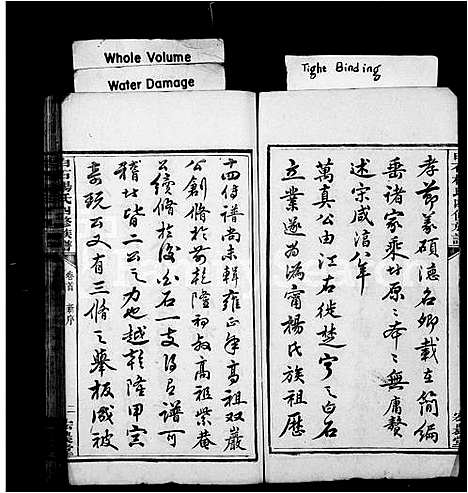 Whole Volume
Water Damage
Tight Binding
孝節義碩德名卿載在簡編
垂諸家乘世原原本本無庸贅
述宗咸淳八年
萬真公由江右徙楚寧之白石
立業遂為溈甯楊氏族祖歷
十四傳譜尚未輯雍正年高祖双巖
公創脩於前乾隆初叔高祖紫菴
公續脩於後白石一支得有譜可
稽者皆二公之力也越乾隆甲寅
嵩玩公又有三脩之舉板燬被
白石楊氏四修族譜
卷首
序
二